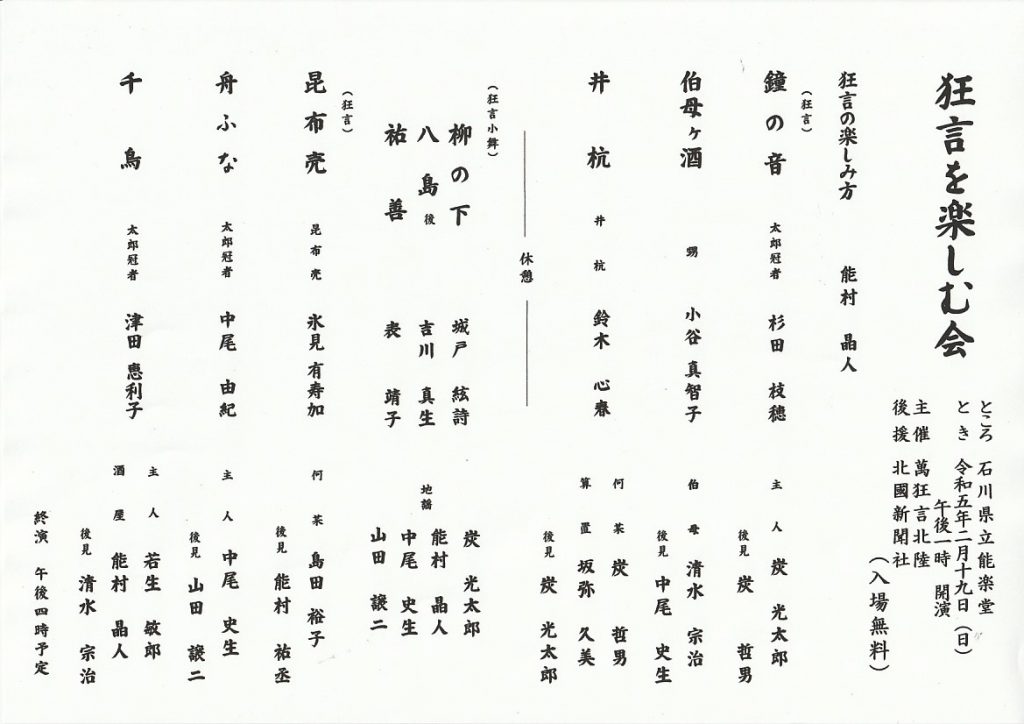 狂言を楽しむ会
ところ 石川県立能楽堂
とき 令和五年二月十九日（日）
午後一時 開演
主催 萬狂言北陸
後援 北國新聞社
（入場無料）
狂言の楽しみ方 能村 晶人
（狂言）
鐘の音 太郎冠者 杉田 枝穂 主人 炭 光太郎
後見 炭 哲男
伯母ヶ酒 甥 小谷 真智子 伯母 清水 宗治
後見 中尾 史生
井杭 井杭 鈴木 心春 何某 炭 哲男
算置 坂弥 久美
後見 炭 光太郎
休憩
（狂言小舞）
柳の下 城戸 絃詩
八島 後 吉川 真生
祐善 表 靖子
地謡 炭 光太郎
能村 晶人
中尾 史生
山田 譲二
（狂言）
昆布売 昆布売 氷見 有寿加 何某 島田 裕子
後見 能村 祐丞
舟ふな 太郎冠者 中尾 由紀 主人 中尾 史生
後見 山田 譲二
千鳥 太郎冠者 津田 惠利子 主人 若生 敏郎
酒屋 能村 晶人
後見 清水 宗治
終演 午後四時予定